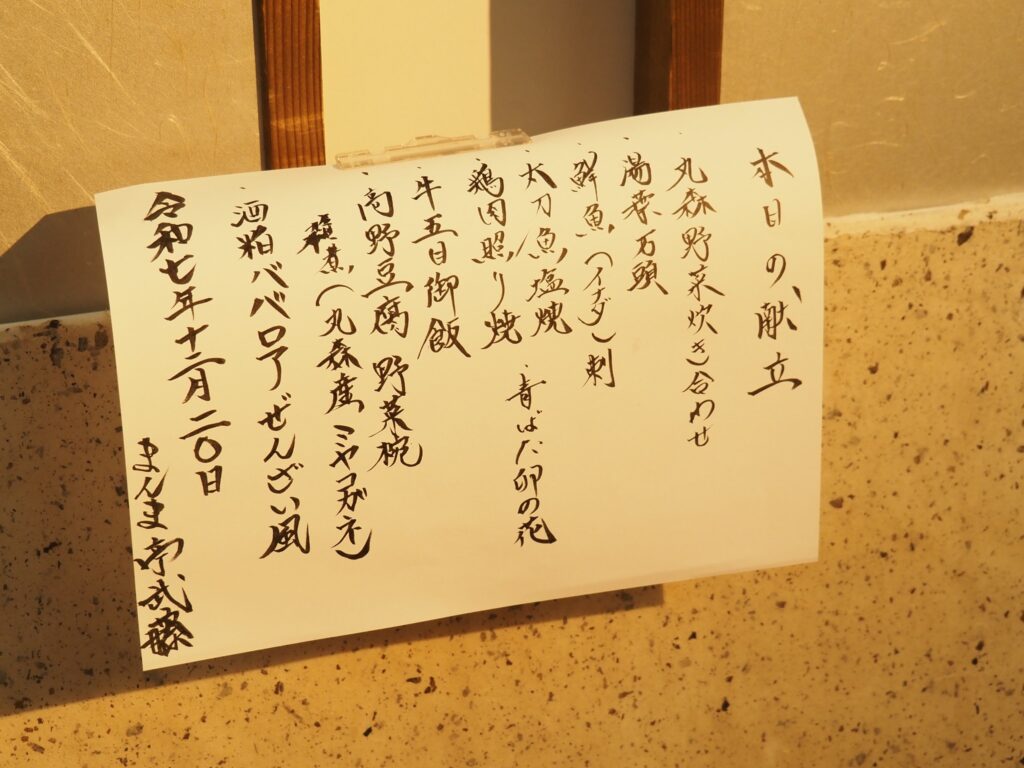 本日の献立
・丸森野菜炊き合わせ
・湯葉万頭
・鮮魚(イナダ)刺
・太刀魚塩焼 ・青ばた卯の花
・鶏肉照り焼
・牛五目御飯
・高野豆腐 野菜椀
・雑煮(丸森産ミヤコガネ)
・酒粕ババロアぜんざい風
令和七年十二月二〇日
まんま亭武藤